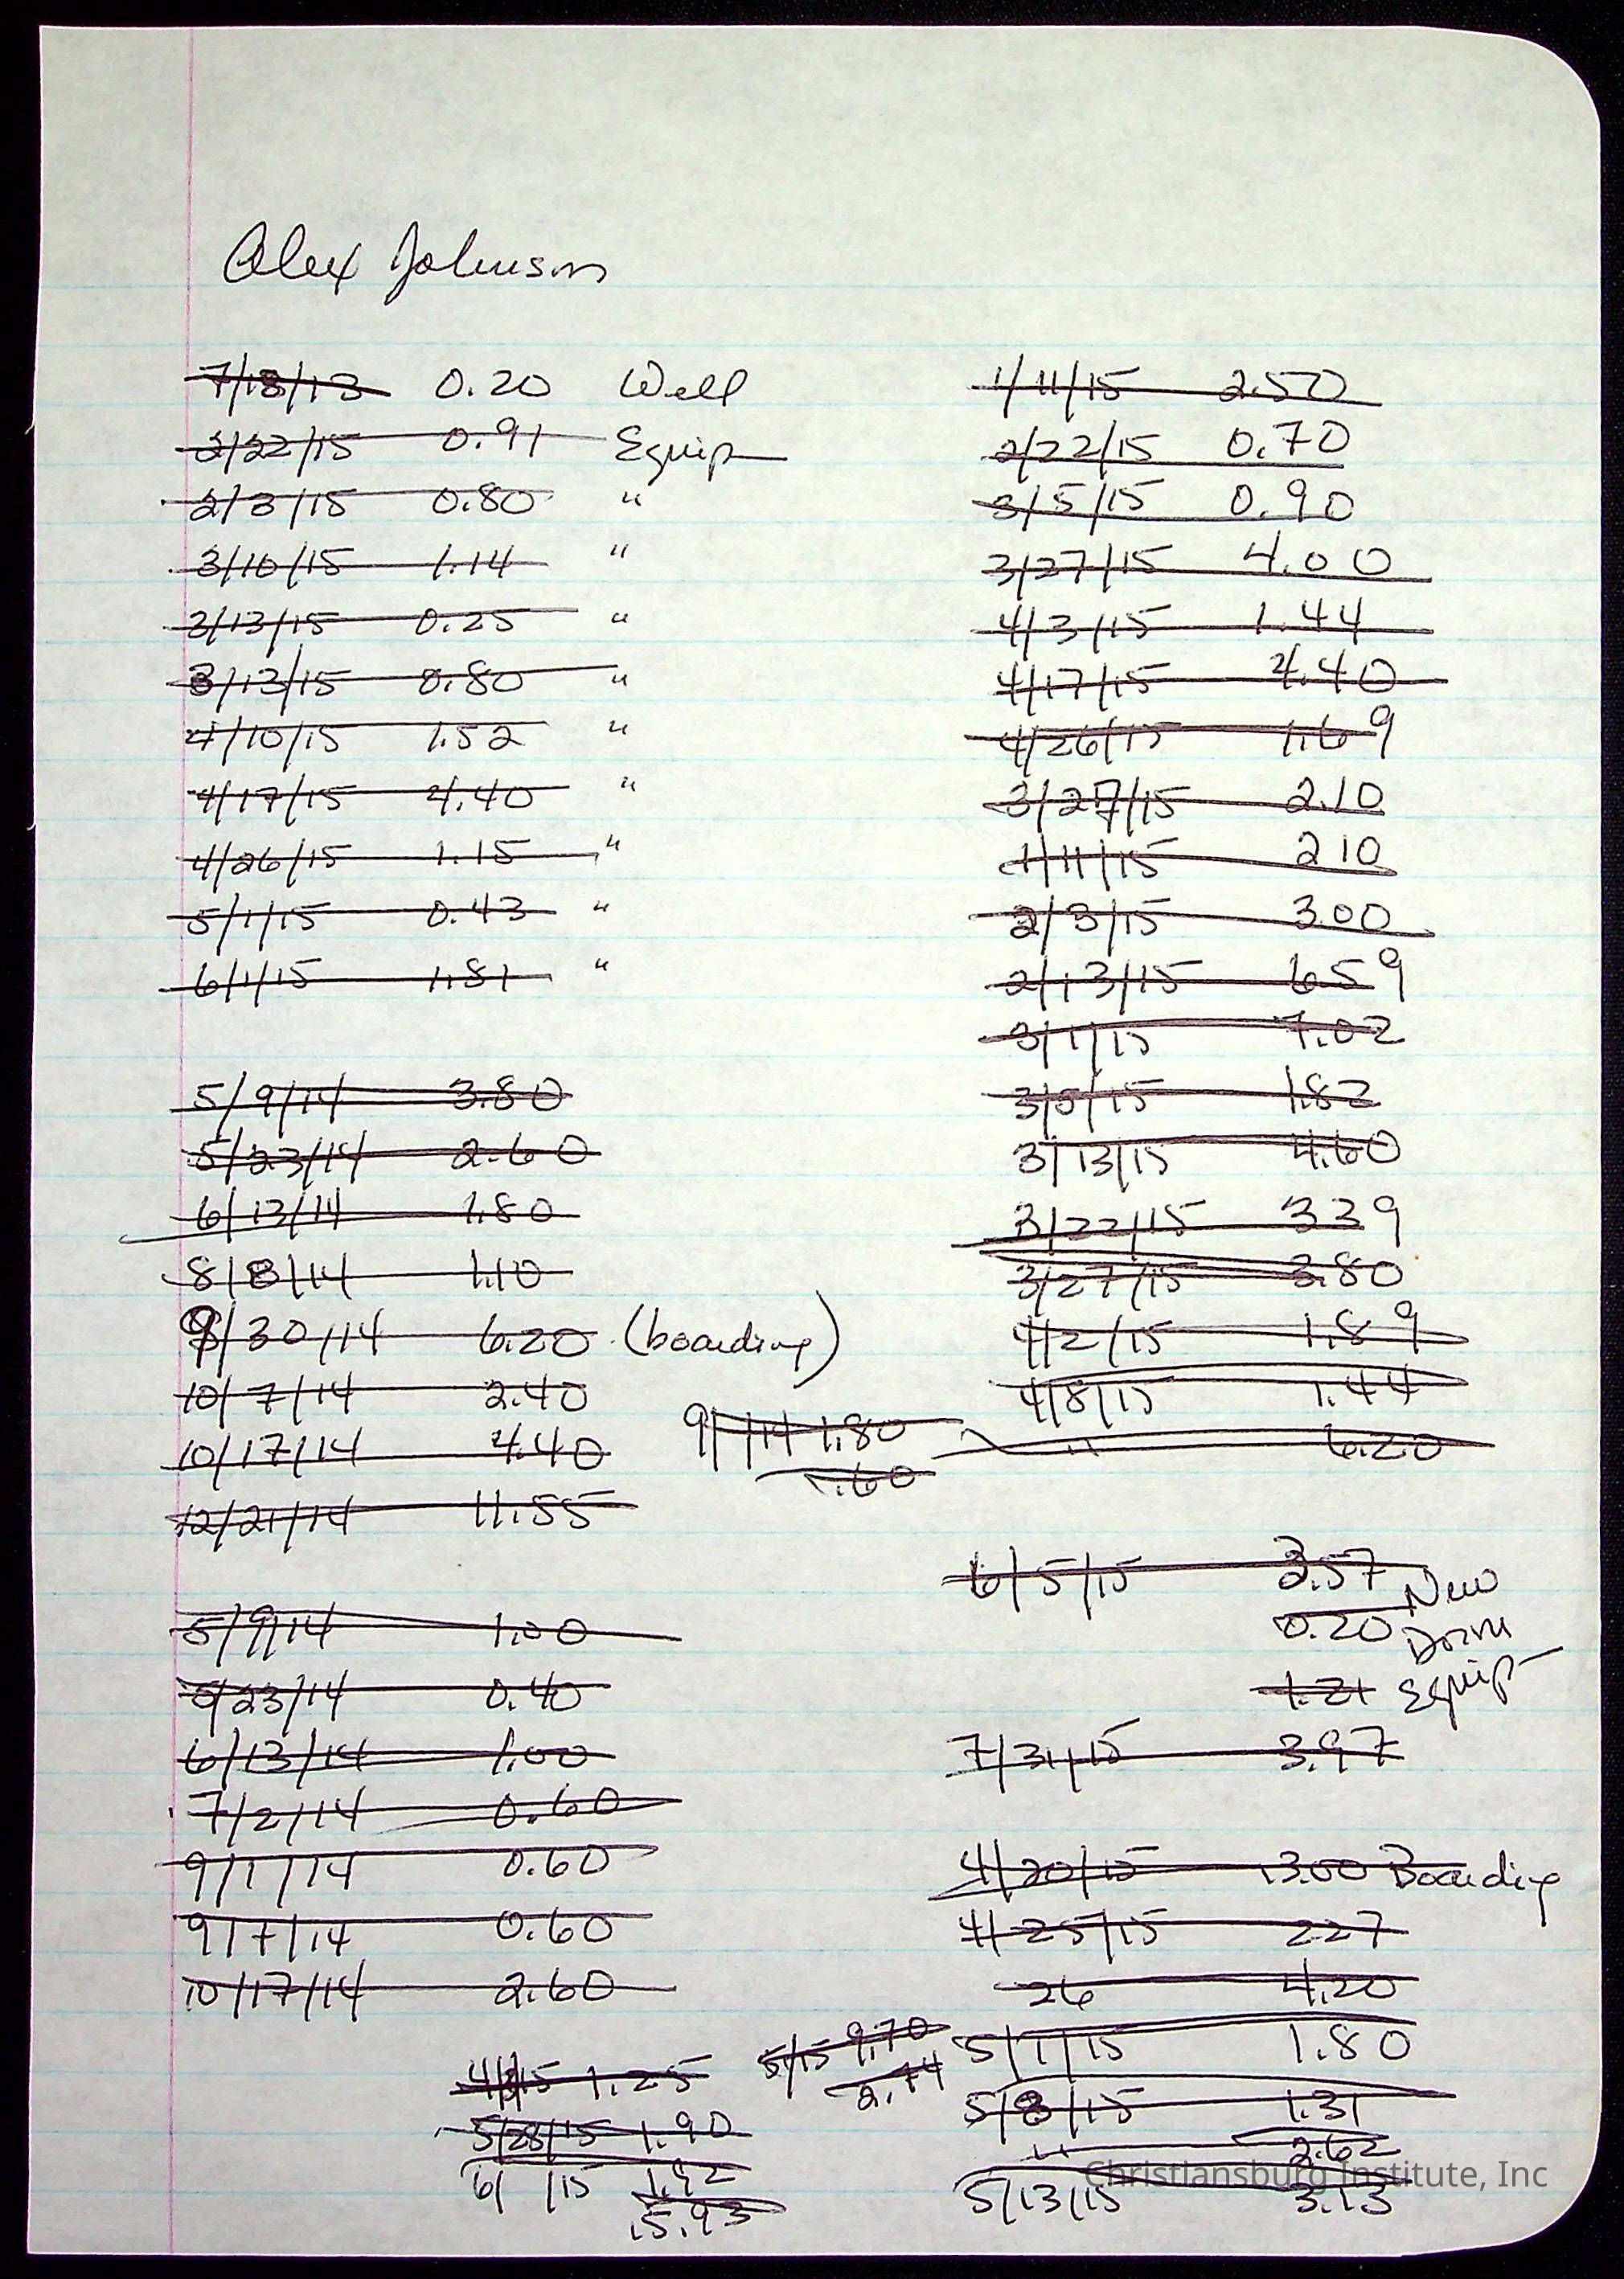 Alex Johnson
7/18/13 0.20 Well
2/22/15 0.91 Equip
2/3/15 0.80 "
3/10/15 1.14 "
3/13/15 0.25 "
3/13/15 0.80 "
4/10/15 1.52 "
4/17/15 4.40 "
4/26/15 1.15 "
5/1/15 0.43 "
6/1/15 1.81 "
5/9/14 3.80
5/23/14 2.60
6/13/14 1.80
8/8/14 1.10
9/30/14 6.20 (boarding)
10/7/14 2.40
10/17/14 4.40
12/21/14 11.55
9/ /14 1.80
1.60
5/9/14 1.00
5/23/14 0.40
6/13/14 1.00
7/2/14 0.60
9/1/14 0.60
9/7/14 0.60
10/17/14 2.60
4/ /15 1.25
5/28/15 1.90
6/ /15 1.42
15.93
5/15 9.70
2.44
1/11/15 2.50
2/22/15 0.70
3/5/15 0.90
3/27/15 4.00
4/3/15 1.44
4/17/15 4.40
4/26/15 1.69
3/27/15 2.10
1/11/15 2 10
2/3/15 3.00
2/13/15 6.59
3/1/15 7.02
3/5/15 1.82
3/13/15 4.60
3/22/15 3.39
3/27/15 3.80
4/2/15 1.89
4/8/15 1.44
" 6.20
6/5/15 3.57 New
0.20 Dorm
1.21 Equip
7/31/15 3.97
4/20/15 13.00 Boarding
4/25/15 2.27
26 4.20
5/1/15 1.80
5/8/15 1.31
" 2.62
5/13/15 3.13
Christiansburg Institute, Inc